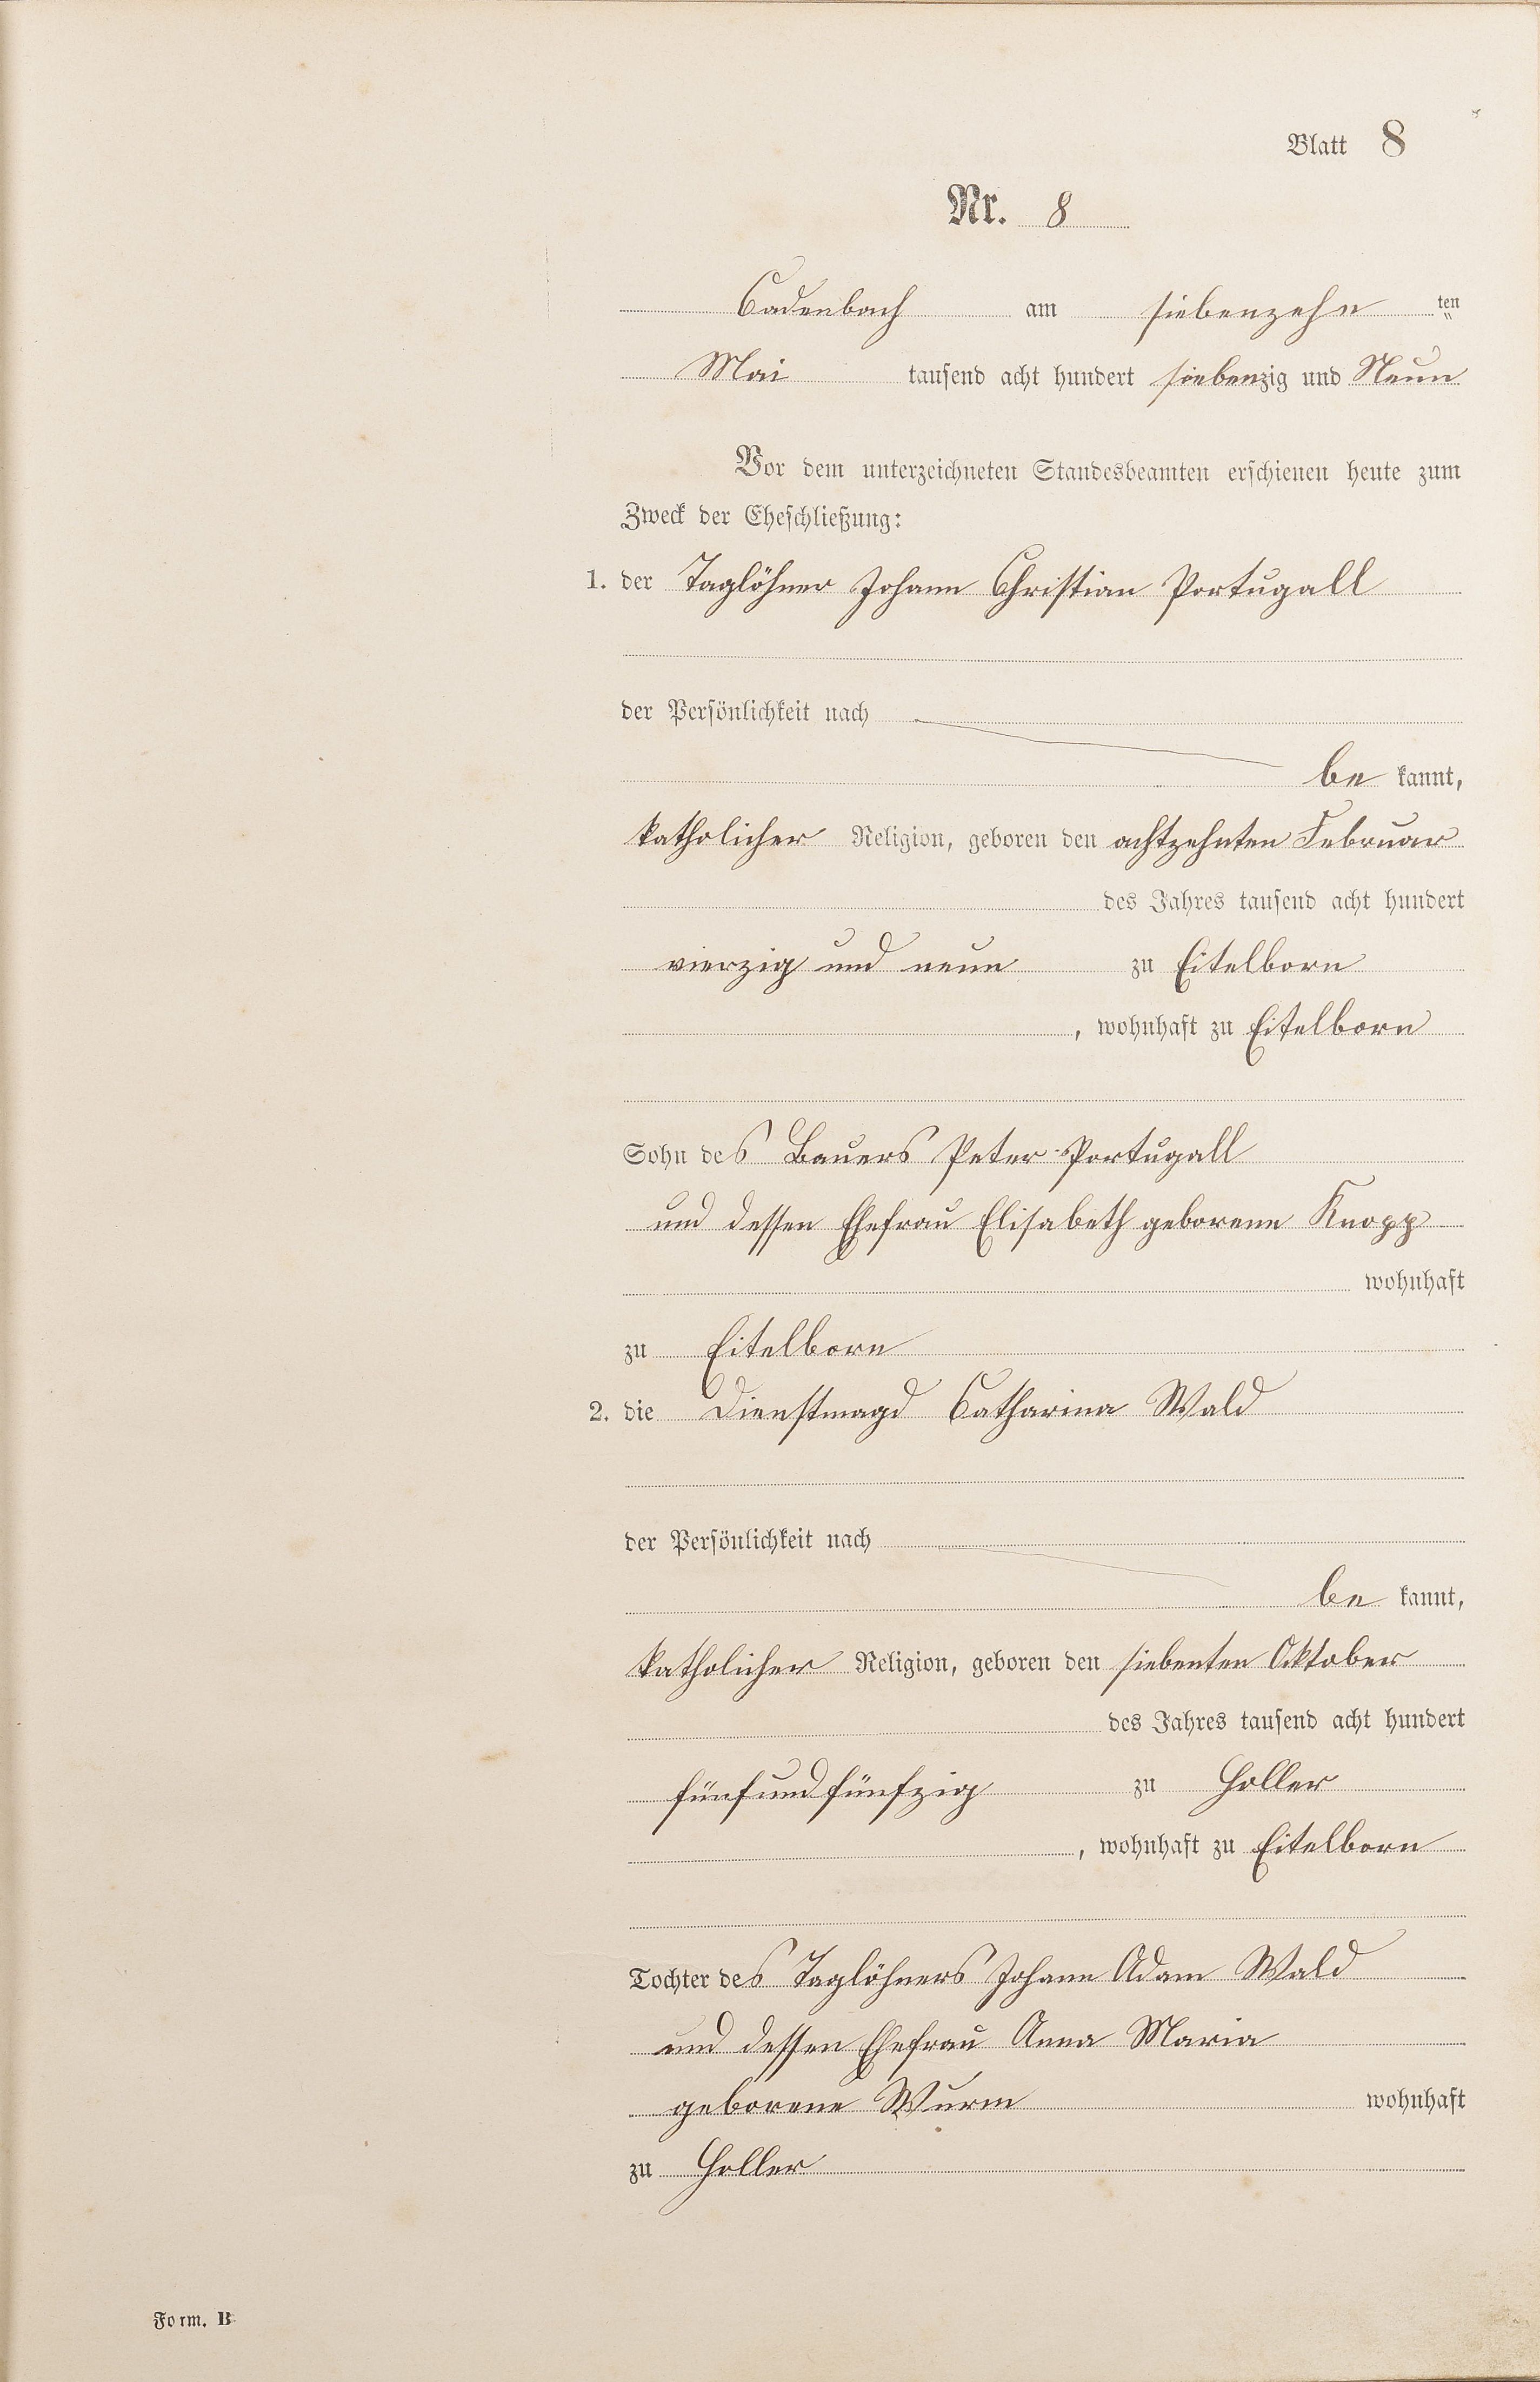 Blatt 8
Nr. 8
Cadenbach am siebenzehn ten
Mai tausend acht hundert siebenzig und Neun
Vor dem unterzeichneten Standesbeamten erschienen heute zum
Zweck der Eheschließung:
1. der Taglöhner Johann Christian Portugall
der Persönlichkeit nach
be kannt,
katholicher Religion, geboren den achtzehnten Februar
des Jahres tausend acht hundert
vierzig und neun zu Eitelborn
, wohnhaft zu Eitelborn
Sohn des Bauers Peter Portugall
und dessen Ehefrau Elisabeth geborene Knopp
wohnhaft
zu Eitelborn
2. die Dienstmagd Catharina Wald
der Persönlichkeit nach
be kannt,
katholicher Religion, geboren den siebenten Oktober
des Jahres tausend acht hundert
fünf und fünfzig zu Holler
, wohnhaft zu Eitelborn
Tochter des Taglöhners Johann Adam Wald
und dessen Ehefrau Anna Maria
geborene Wurm wohnhaft
zu Holler
Form. B